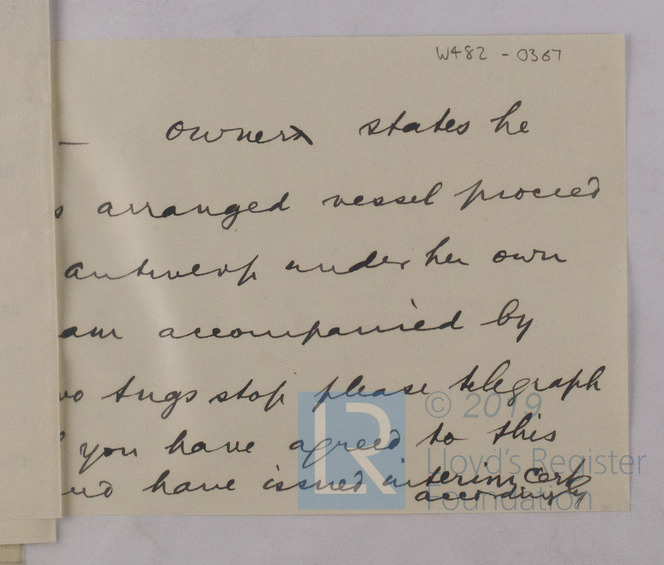 W482 - 0367
— owner states he
s arranged vessel proceed
antwerp under her own
eam accompanied by
wo tugs stop please telegraph
you have agreed to this
and have issued interim cert
accordingly
LR
© 2019
Lloyd's Register
Foundation